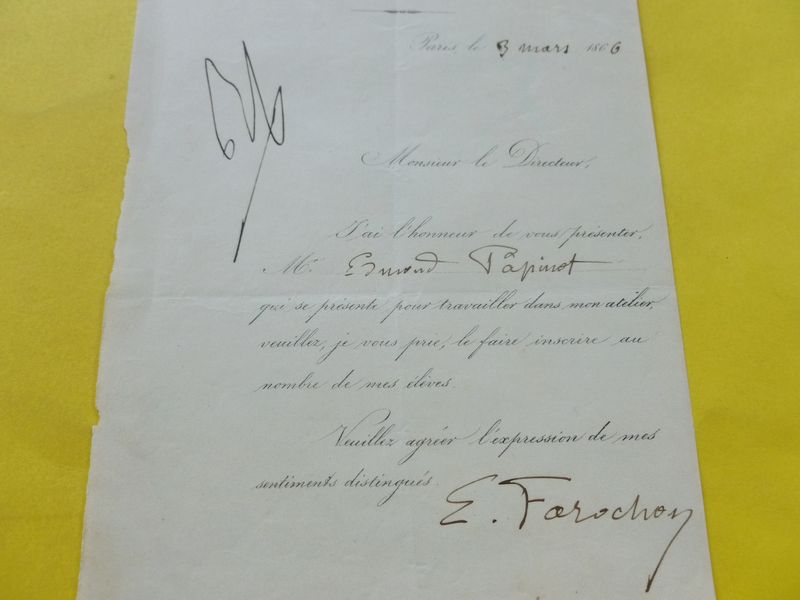 Paris, le 3 mars 1866
Monsieur le Directeur,
J'ai l'honneur de vous présenter,
Mr. Edmond Papinot
qui se présente pour travailler dans mon atelier,
veuillez, je vous prie, le faire inscrire au
nombre de mes élèves.
Veuillez agréer l'expression de mes
sentiments distingués.
E. Farochon